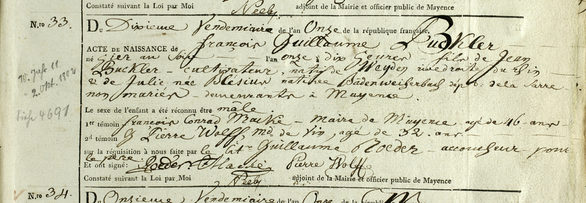 Constaté suivant la Loi par Moi Nieby adjoint de la Mairie et officier public de Mayence
N.ro 33.
Du Dixieme Vendemiaire de l'an Onze de la république française.
ACTE DE NAISSANCE de françois Guillaume Buckler
né hier au soir l'an onze à dix heures fils de Jean
Buckler cultivateur, natif de Weyden rive droite du Rhin
& de Julie née Blesius native de Badenweiherbach dép. de la Sarre
non mariés demeurants à Mayence.
Le sexe de l'enfant a été reconnu être male.
1er témoin françois Conrad Macké - Maire de Mayence agé de 46 ans
2d témoin & Pierre Wolff md. de vin, agé de 32 ans
sur la réquisition à nous faite par le Guillaume Roeder accoucheur pour
le père
Et ont signé: Roeder Macké Pierre Wolff
Constaté suivant la Loi par Moi Nieby adjoint de la Mairie et officier public de Mayence
N.ro 34.
Du Onsieme Vendemiaire de l'an Onze
2 Oct. 1802
9691